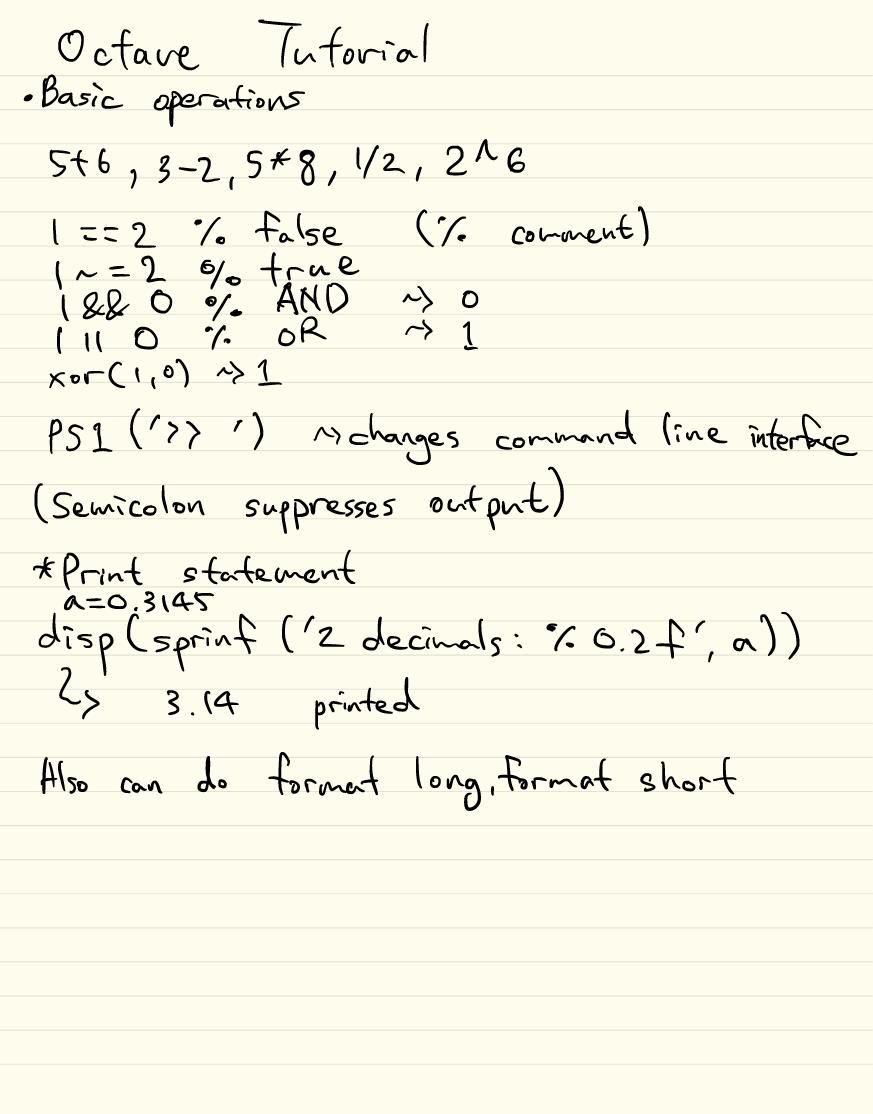 Octave Tutorial
• Basic operations
5+6, 3-2, 5*8, 1/2, 2^6
1 == 2 % false (% comment)
1 ~= 2 % true
1 && 0 % AND ~> 0
1 || 0 % OR ~> 1
xor(1,0) ~> 1
PS1('>> ') ~> changes command line interface
(Semicolon suppresses output)
*Print statement
a=0.3145
disp(sprinf('2 decimals: %0.2f', a))
↳ 3.14 printed
Also can do format long, format short